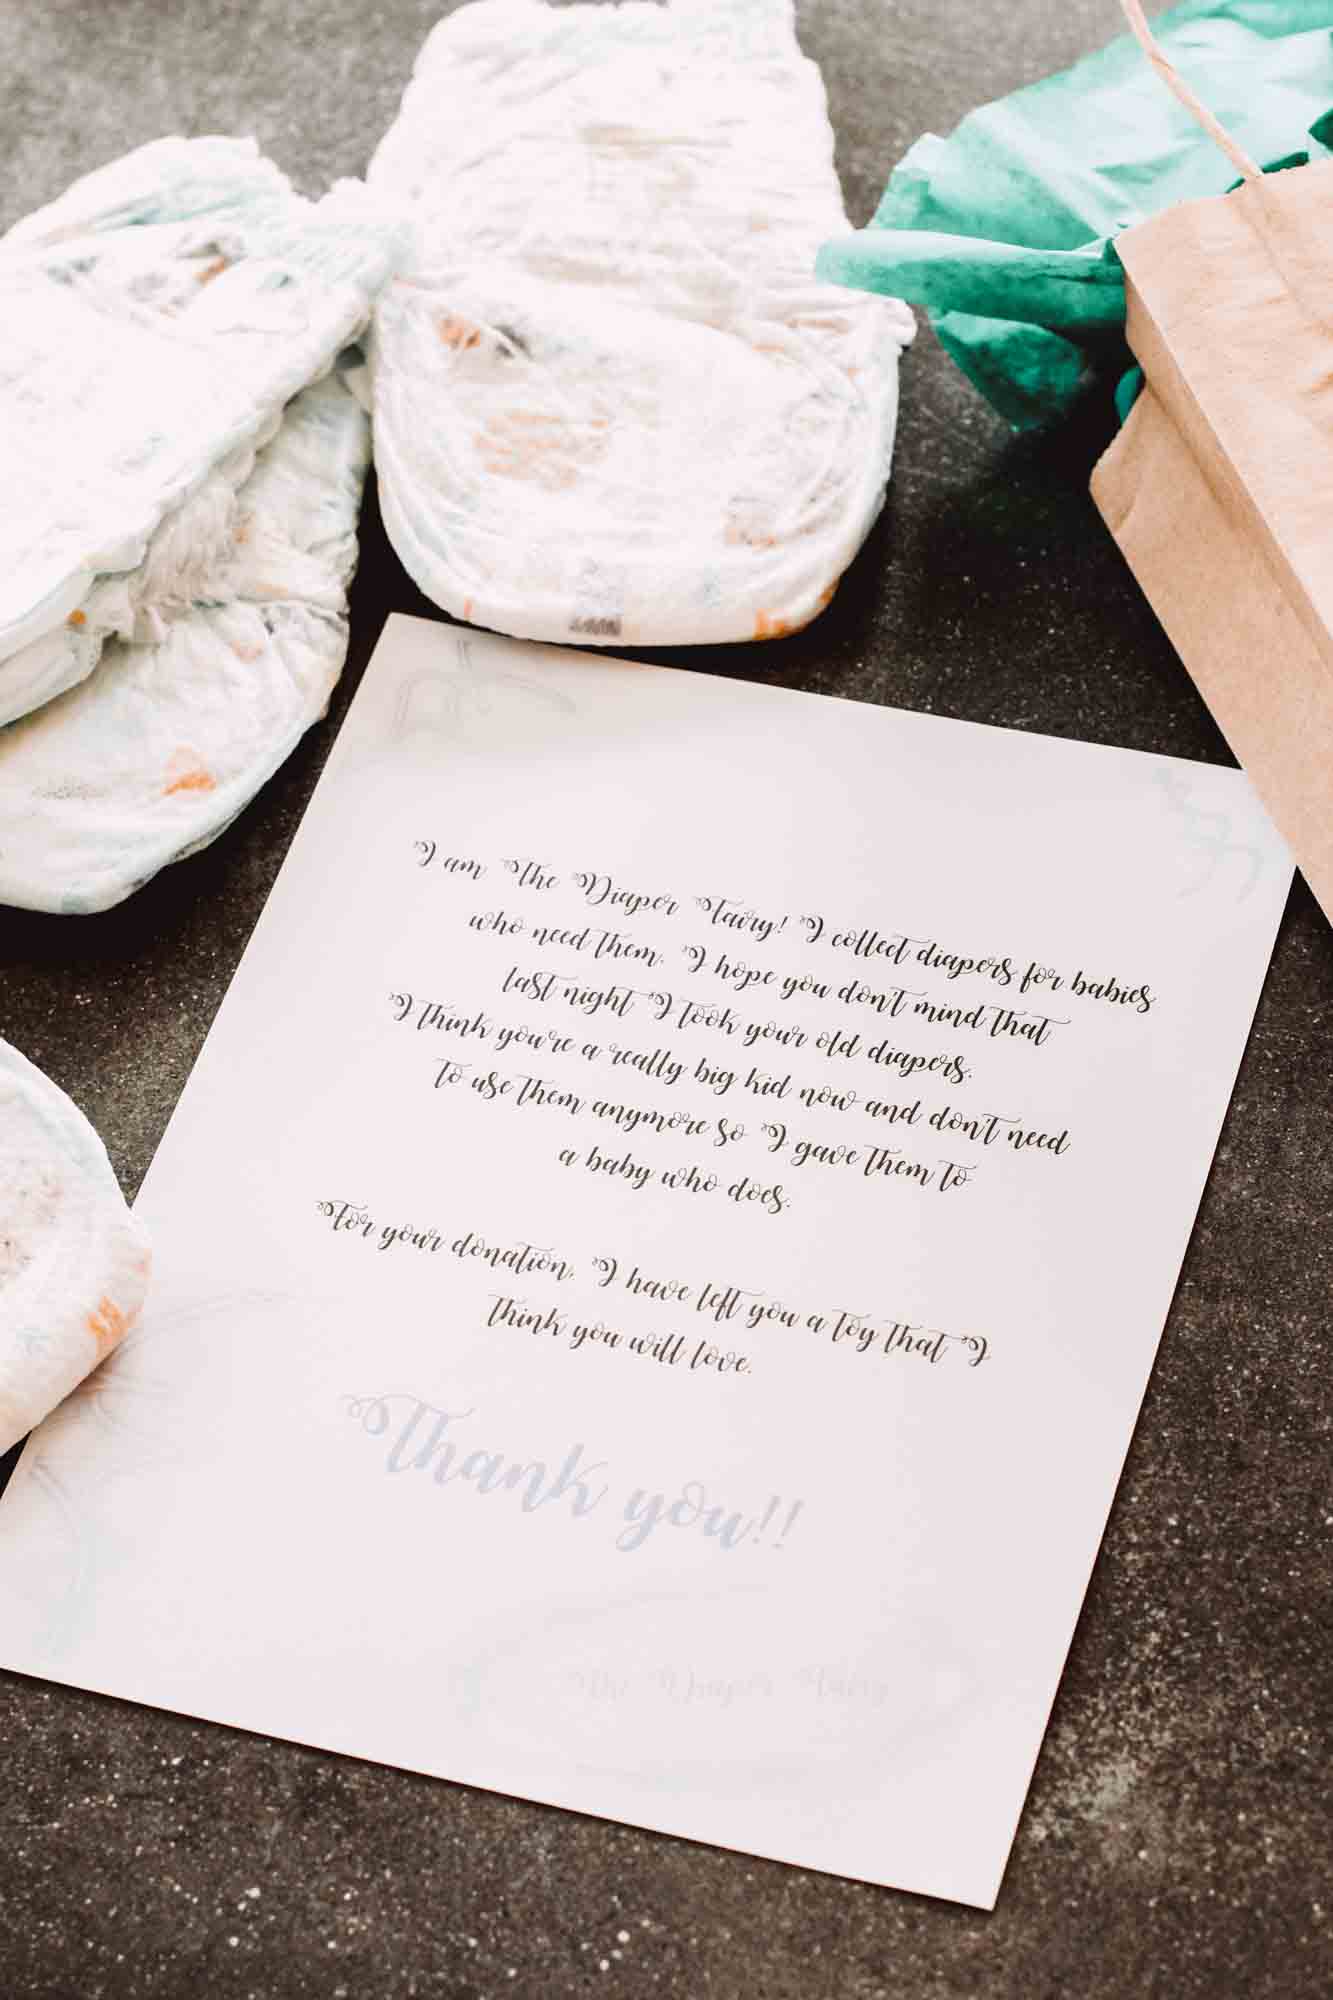 I am The Diaper Fairy! I collect diapers for babies
who need them. I hope you don't mind that
last night I took your old diapers.
I think you're a really big kid now and don't need
to use them anymore so I gave them to
a baby who does.
For your donation, I have left you a toy that I
think you will love.
Thank you!!
The Diaper Fairy